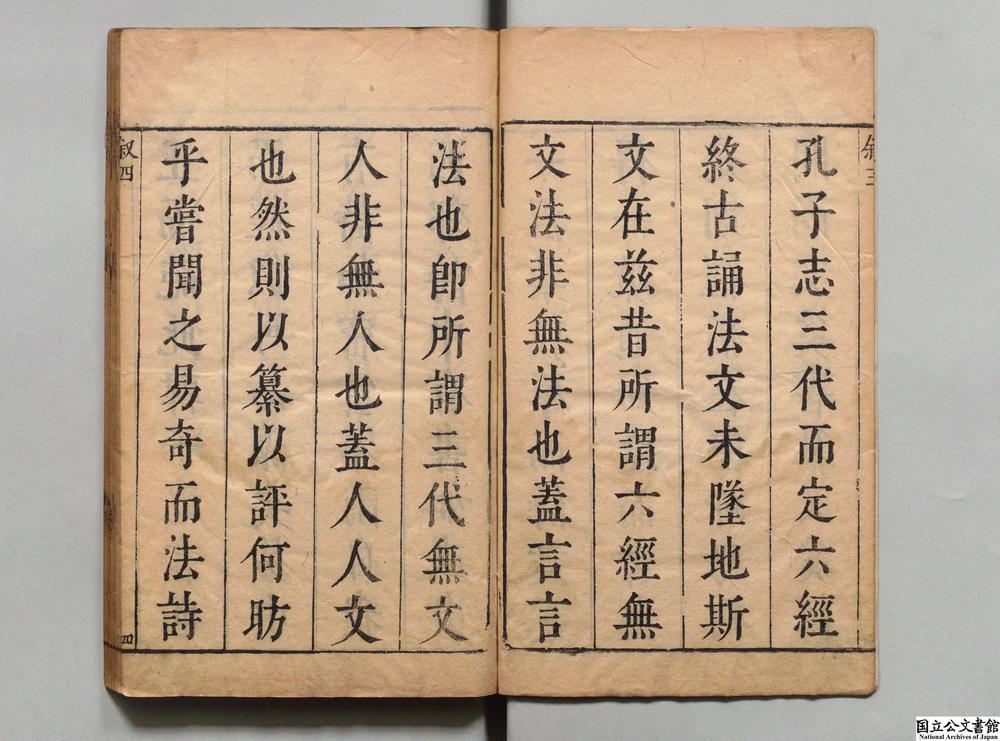 叙三
孔子志三代而定六經
終古誦法文未墜地斯
文在茲昔所謂六經無
文法非無法也蓋言言
法也卽所謂三代無文
人非無人也蓋人人文
也然則以纂以評何昉
乎嘗聞之易奇而法詩
叙四
四
国立公文書館
National Archives of Japan